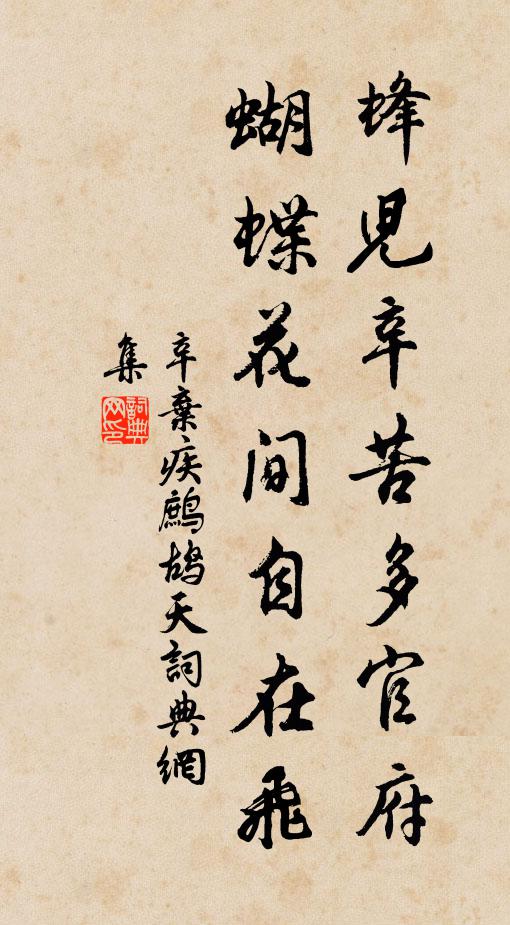 蜂兒辛苦多官府
蝴蝶花間自在飛
辛棄疾鷓鴣天詞典網
集
詞典
网印